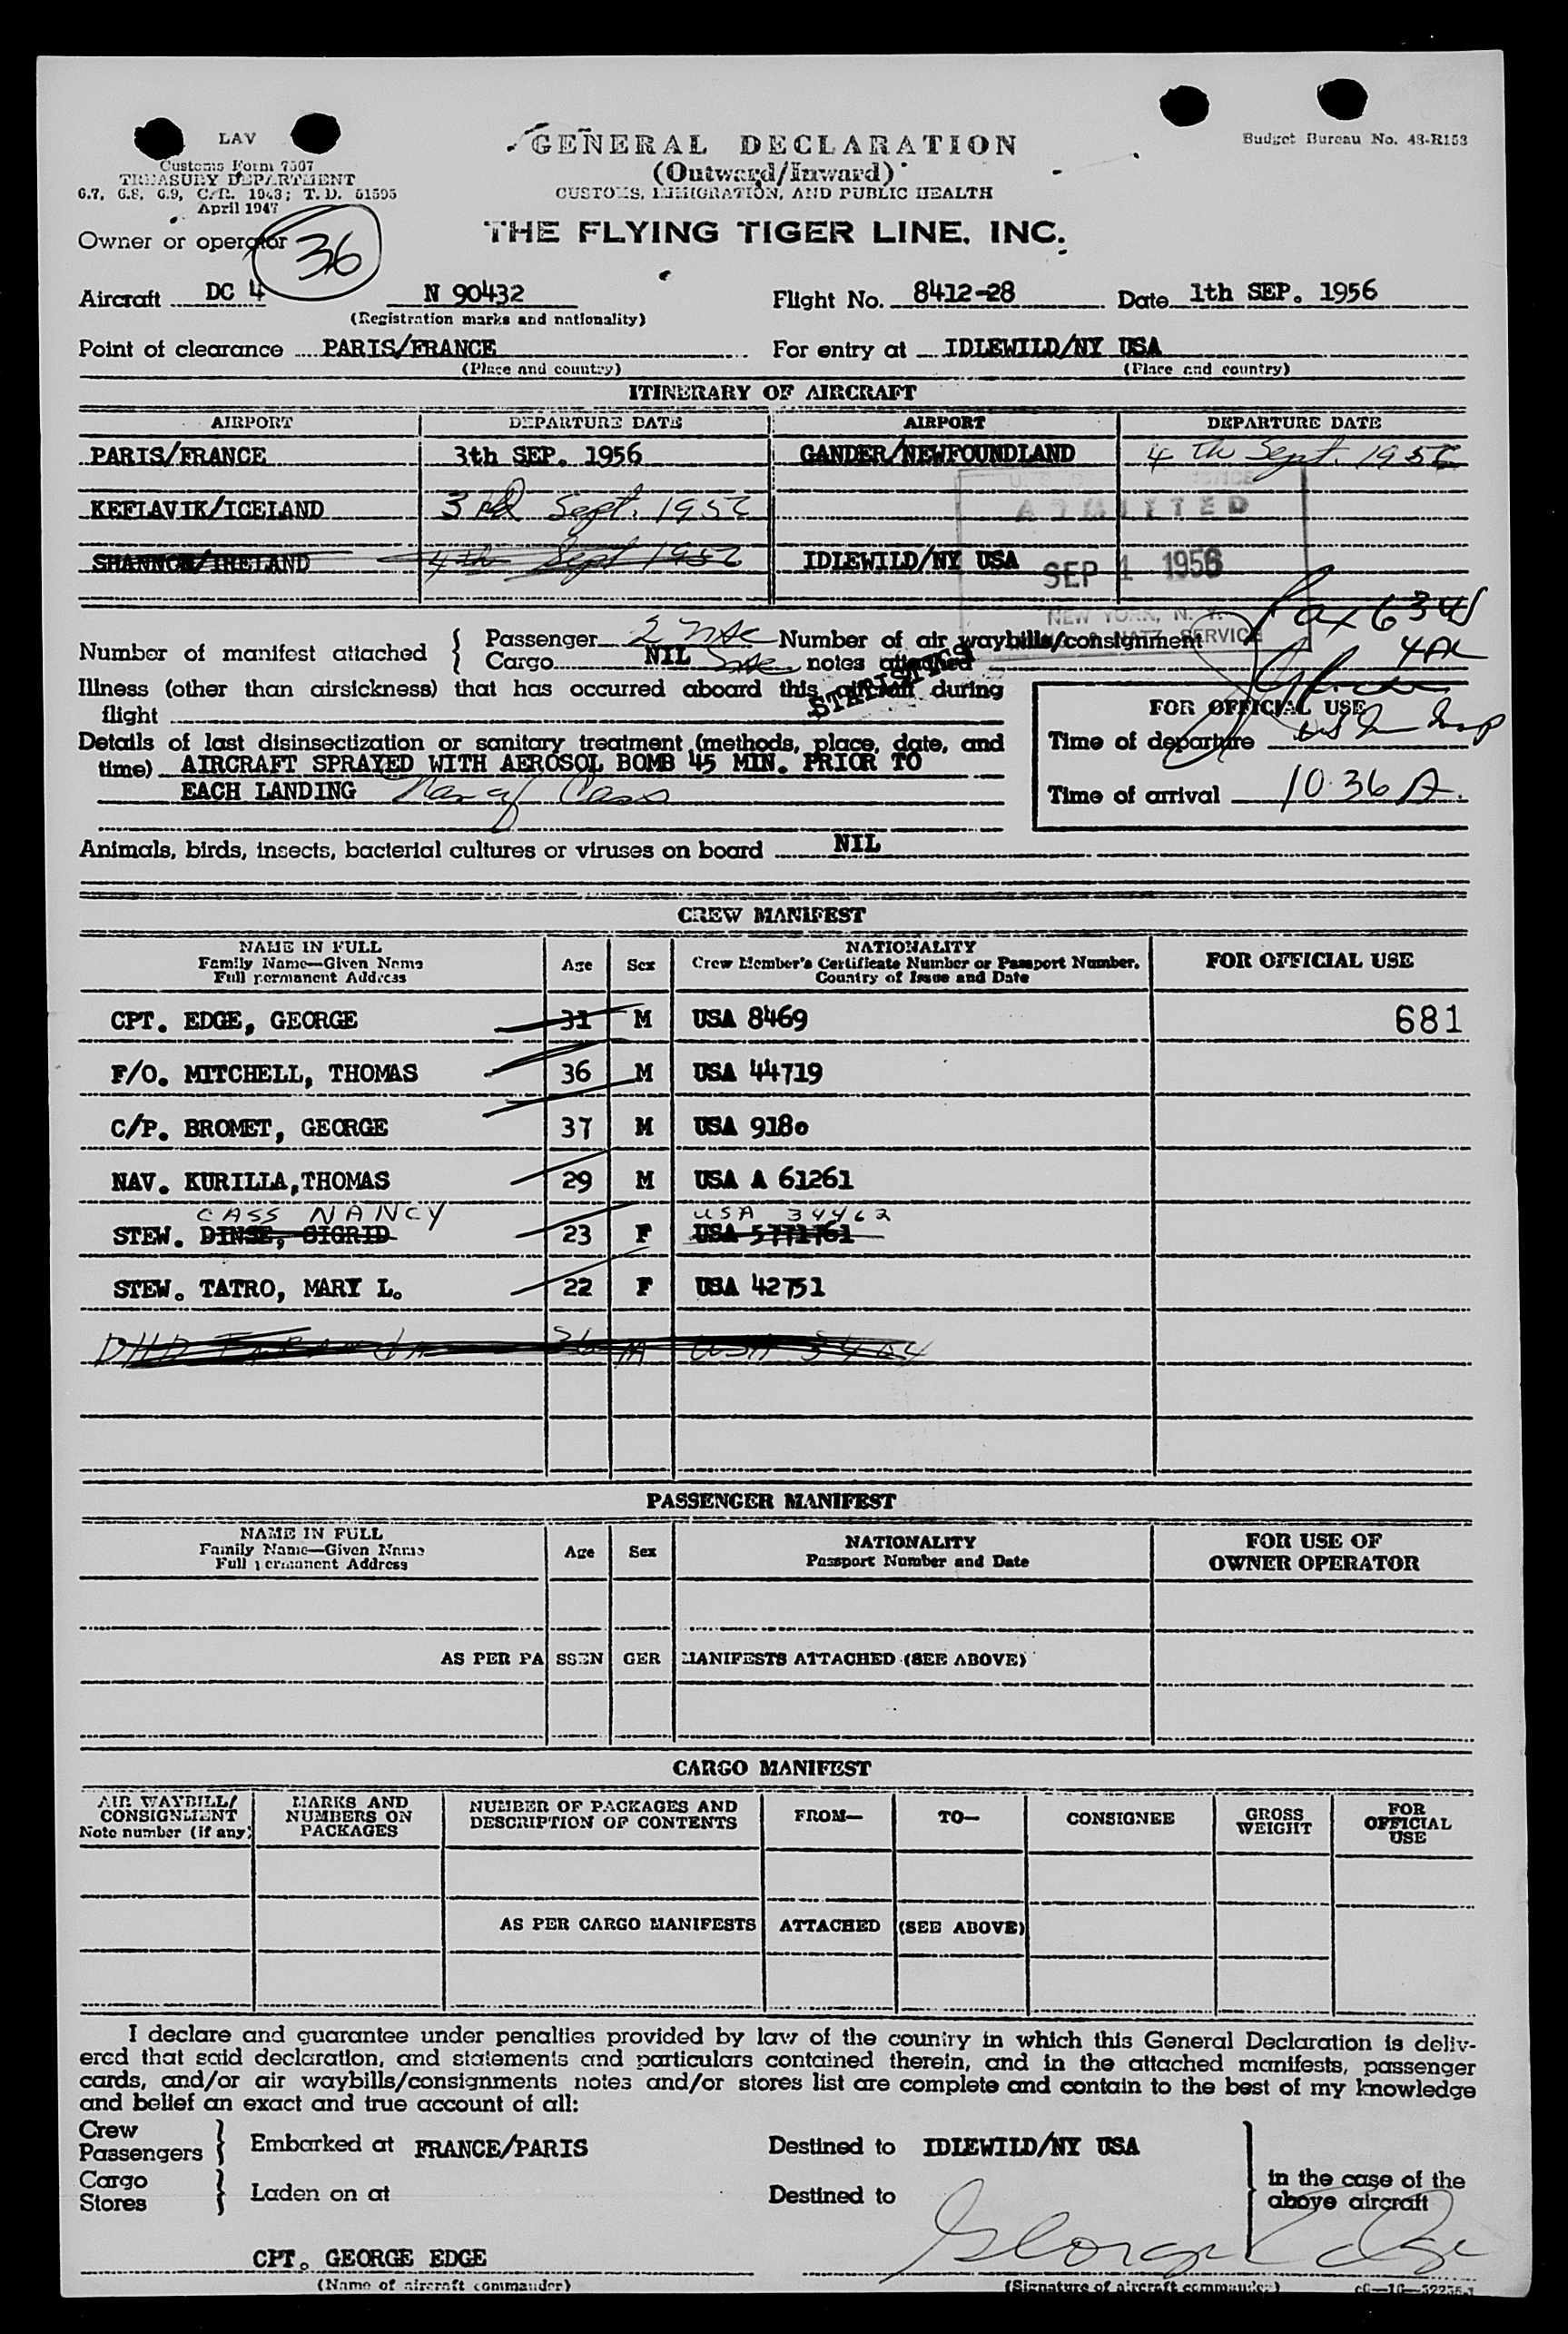 LAV
Customs Form 7507
TREASURY DEPARTMENT
April 1947
GENERAL DECLARATION
(Outward/Inward)
CUSTOMS, IMMIGRATION, AND PUBLIC HEALTH
Budget Bureau No. 43-R153
THE FLYING TIGER LINE, INC.
Owner or operator 36
Aircraft DC 4 N 90432 Flight No. 8412-28 Date 1th SEP. 1956
(Registration marks and nationality)
Point of clearance PARIS/FRANCE For entry at IDLEWILD/NY USA
(Place and country) (Place and country)
ITINERARY OF AIRCRAFT
AIRPORT DEPARTURE DATE AIRPORT DEPARTURE DATE
PARIS/FRANCE 3th SEP. 1956 GANDER/NEWFOUNDLAND 4 Th Sept. 1956
KEFLAVIK/ICELAND 3rd Sept. 1956
ADMITTED
SHANNON/IRELAND 4th Sept 1956 IDLEWILD/NY USA
SEP 1956
NEW YORK, N. Y.
Number of manifest attached Passenger 2 Number of air waybills/consignment
Cargo NIL notes attached
STATISTICS
Illness (other than airsickness) that has occurred aboard this aircraft during
flight
FOR OFFICIAL USE
Details of last disinsectization or sanitary treatment (methods, place, date, and
time) AIRCRAFT SPRAYED WITH AEROSOL BOMB 45 MIN. PRIOR TO
EACH LANDING Nancy Cass
Time of departure
Time of arrival 10:36 A.
Animals, birds, insects, bacterial cultures or viruses on board NIL
CREW MANIFEST
NAME IN FULL
Family Name—Given Name
Full permanent Address
Age Sex
NATIONALITY
Crew Member's Certificate Number or Passport Number,
Country of Issue and Date
FOR OFFICIAL USE
CPT. EDGE, GEORGE 31 M USA 8469 681
F/O. MITCHELL, THOMAS 36 M USA 44719
C/P. BROMET, GEORGE 37 M USA 9180
NAV. KURILLA,THOMAS 29 M USA A 61261
CASS NANCY USA 34462
STEW. DINSE, SIGRID 23 F USA 5771761
STEW. TATRO, MARY L. 22 F USA 42751
DHD 36 M USA
PASSENGER MANIFEST
NAME IN FULL
Family Name—Given Name
Full permanent Address
Age Sex
NATIONALITY
Passport Number and Date
FOR USE OF
OWNER OPERATOR
AS PER PASSENGER MANIFESTS ATTACHED (SEE ABOVE)
CARGO MANIFEST
AIR WAYBILL/
CONSIGNMENT
Note number (if any)
MARKS AND
NUMBERS ON
PACKAGES
NUMBER OF PACKAGES AND
DESCRIPTION OF CONTENTS
FROM— TO— CONSIGNEE
GROSS
WEIGHT
FOR
OFFICIAL
USE
AS PER CARGO MANIFESTS ATTACHED (SEE ABOVE)
I declare and guarantee under penalties provided by law of the country in which this General Declaration is deliv-
ered that said declaration, and statements and particulars contained therein, and in the attached manifests, passenger
cards, and/or air waybills/consignments notes and/or stores list are complete and contain to the best of my knowledge
and belief an exact and true account of all:
Crew
Passengers Embarked at FRANCE/PARIS Destined to IDLEWILD/NY USA
Cargo
Stores Laden on at Destined to
in the case of the
above aircraft
CPT. GEORGE EDGE George Edge
(Name of aircraft commander) (Signature of aircraft commander)